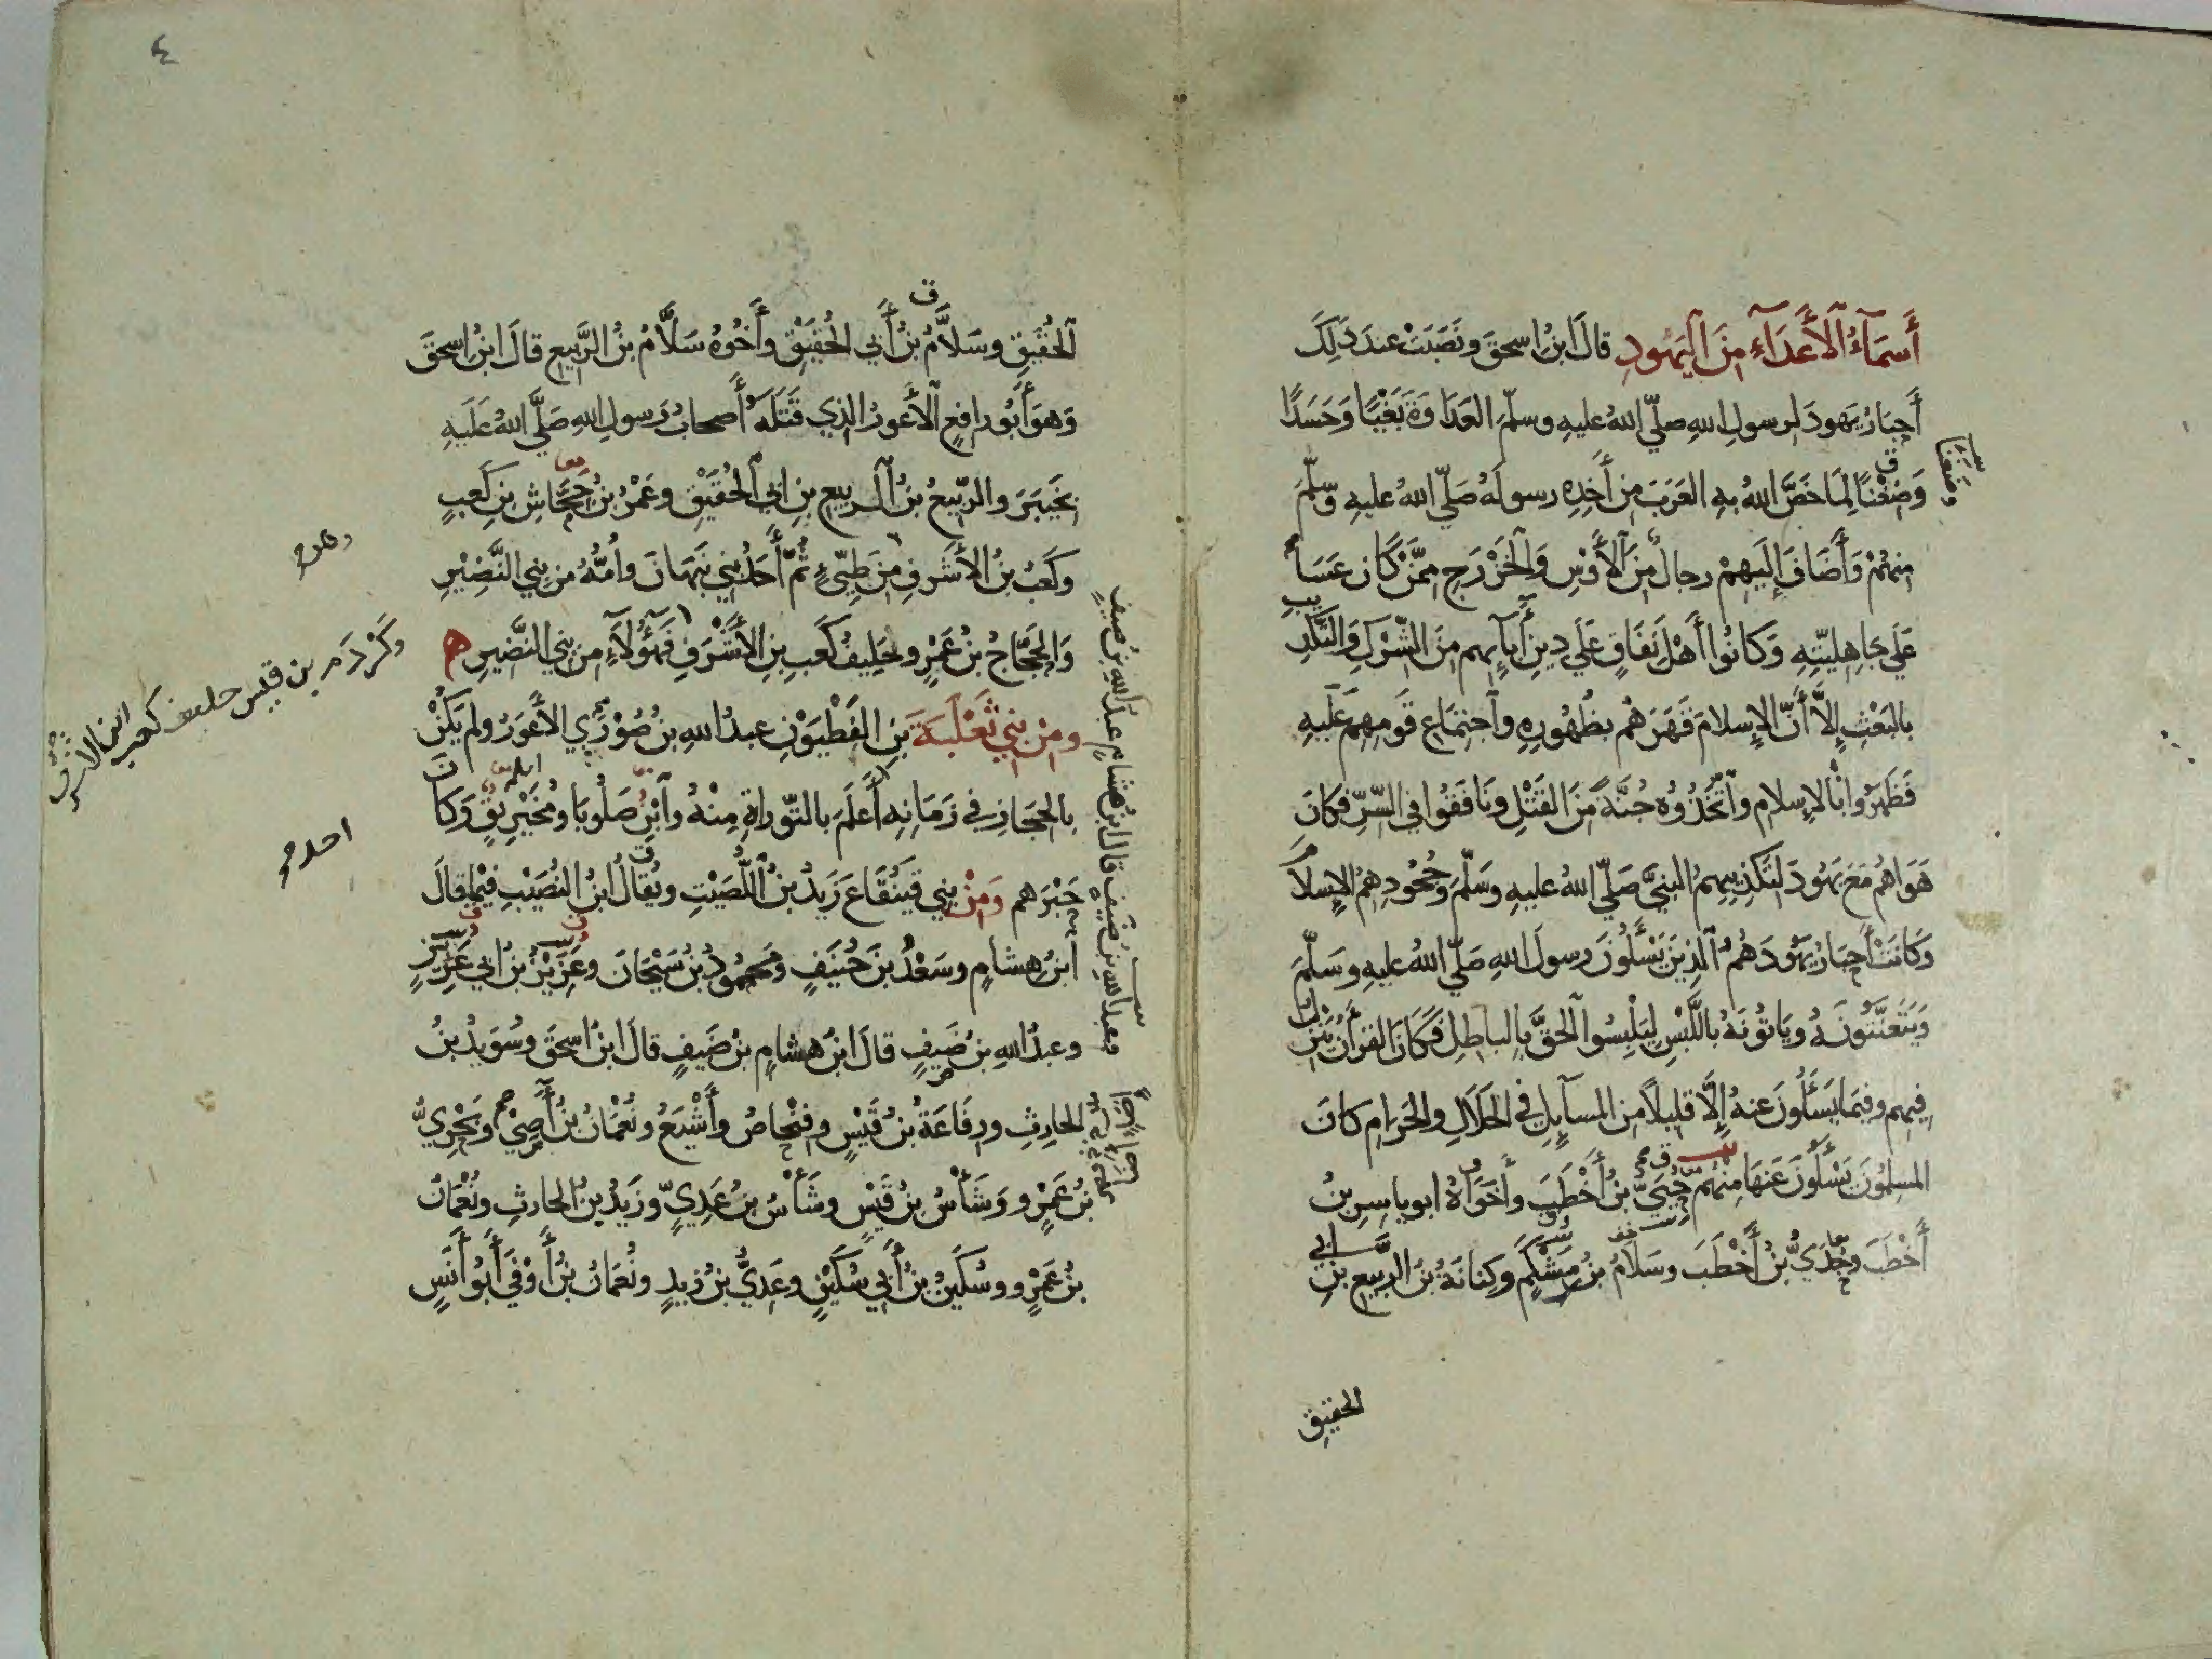 أَسمَآءُ ٱلأَعدَآءِ مِنَ اليَهُودِ قالَ ابنُ اسحقَ ونَصَبَتْ عندَ ذَلِكَ
أَحبَارُ يَهودَ لرسولِ اللهِ صلّي اللهُ عليهِ وسلّمَ العَدَاوَةَ بَغْيًا وَحَسَدًا
وَضِغْنًا لِمَا خَصَّ اللهُ بهِ العَرَبَ مِن أَخذِهِ رسولَهُ صَلّي اللهُ عليهِ وسلّمَ
مِنهُمْ وَأَضَافَ إِلَيهِمْ رجالٌ مِنَ ٱلأَوْسِ وَالخَزْرَجِ مِمَّنْ كَانَ عَسَا
عَلَي جاهِليّتِهِ وَكَانُوا أَهْلَ نِفَاقٍ عَلَي دِينِ أَبآيِهِم مِنَ الشِّرْكِ وَالتَّكذِيبِ
بالبَعْثِ إِلاَّ أَنَّ الإِسلامَ قَهَرَهُم بظُهُورِهِ وٱجتِمَاعِ قَومِهِمْ عَلَيهِ
فَظَهَرُوا بالإِسلامِ وٱتَّخَذُوُه جُنَّةً مِنَ القَتْلِ ونَافَقُوا في السِّرِّ فكَانَ
هَوَاهُم مَعَ يَهُودَ لتَكذِيبِهِمُ النبيَّ صَلّي اللهُ عليهِ وسَلّمَ وجُحُودِهِمُ الإِسلامَ
وَكَانَتْ أَحبَارُ يَهُودَ هُمُ ٱلذِينَ يَسْأَلُونَ رسولَ اللهِ صَلّي اللهُ عليهِ وسَلّمَ
وَيَتَعَنَّتُونَهُ ويَاتُونَهُ باللَّبْسِ لِيَلْبِسُوا ٱلحَقَّ بِالباطِلِ فَكَانَ القرأنُ يَنزِلُ
فِيهِم وفيمَا يَسْأَلُونَ عنهُ إِلَّا قليلاً مِن المسآيلِ في الحَلَالِ والحَرَامِ كانَ
المسلِمُونَ يَسْأَلُونَ عَنهَا مِنهُم حُيَيُّ بنُ أَخْطَبَ وأَخَوَاهُ ابو ياسِرِ بنُ
أَخْطَبَ وجُدَيُّ بنُ أَخْطَبَ وسَلَامُ بنُ مِشْكَمٍ وكِنانَةُ بنُ الرَّبِيعِ بنِ أبي
الحقيق
٤
ٱلحُقَيقِ وسَلاَّمُ بنُ أَبي الحُقَيْقِ وأَخُوهُ سَلَّامُ بنُ الرَّبِيعِ قالَ ابنُ اسحقَ
وَهوَ أَبُو رافِعٍ ٱلأَعورُ الذِي قَتَلَهُ أَصحابُ رَسولِ اللهِ صَلَّي اللهُ عَلَيهِ
بخَيبَرَ والرَّبِيعُ بنُ ٱلربيعِ بنِ ابي الحُقَيْقِ وعَمْرُو بنُ جَحَّاشِ بنِ كَعبٍ
وكَعبُ بنُ الأَشرَفِ مِن طَيّيءٍ ثُمَّ أَحَدُ بني نَبهَانَ وأُمُّهُ من بني النَّضِيْرِ
وَالحَجَّاجُ بنُ عَمْرٍو حَلِيفُ كَعبِ بنِ الأَشْرَفِ فهَؤُلآءِ من بني النَّضيرِ
ومِنْ بَنِي ثَعْلَبَةَ بنِ الفَطْيَوْنِ عبدُ اللهِ بنُ صُوْرَي الأَعوَرُ ولم يَكُنْ
بالحِجَازِ في زَمَانِهِ أَعلَمَ بالتّوراةِ مِنهُ وٱبنُ صَلُوبَا ومُخَيرِيقٌ وَكانَ
حَبْرَهم وَمِنْ بني قَينُقَاعَ زَيدُ بنُ اللَّصَيْتِ ويُقالُ ابنُ النُصَيْبِ فيْمَا قالَ
ابنُ هِشامٍ وسَعْدُ بنُ حُنَيفٍ ومَحمُودُ بنُ سَيْحَانَ وعُزَيْزُ بنُ ابي عُزَيزٍ
وعبدُ اللهِ بنُ ضَيفٍ قالَ ابنُ هشامٍ بنُ صَيفٍ قالَ ابنُ اسحَقَ وسُوَيدُ بنُ
الحارِثِ ورِفَاعَةُ بنُ قَيْسٍ وفِنْحاصُ وأَشْيَعُ ونُعْمَانُ بنُ أَضَا وبَحْرِيُّ
بنُ عَمْرٍو وَشَأْسُ بنُ قَيْسٍ وشَأْسُ بنُ عَدِيٍّ وزَيدُ بنُ الحارثِ ونُعْمَانُ
بنُ عَمْرٍو وسُكَينُ بنُ أَبي سُكَيْنٍ وعَدِيُّ بنُ زيدٍ ونُعمَانُ بنُ أَوْفَي أَبُو أَنَسٍ
وكَرْدَم بن قيس حليف كعب ابن الاشرف